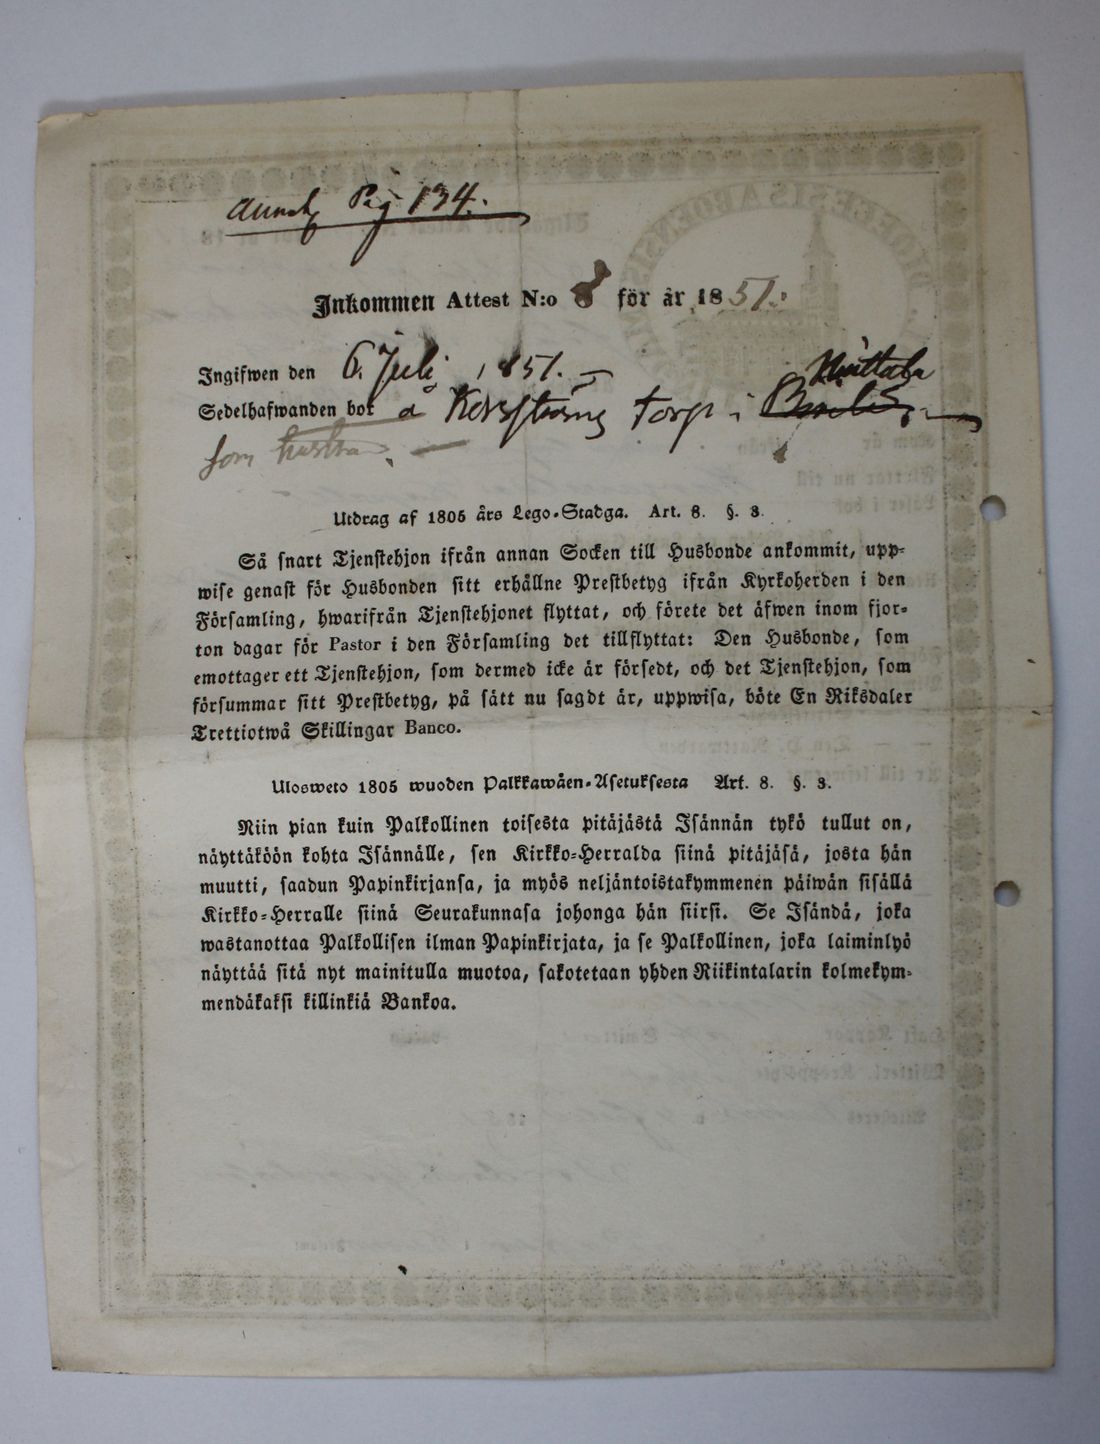 Pag 134.
Inkommen Attest N:o 8 för år 1851.
Ingifwen den 6. Juli 1851.
Sedelhafwanden bor å torp i
som hustru.
Utdrag af 1805 års Lego-Stadga. Art. 8. §. 3.
Så snart Tjenstehjon ifrån annan Socken till Husbonde ankommit, upp-
wise genast för Husbonden sitt erhållne Prestbetyg ifrån Kyrkoherden i den
Församling, hwarifrån Tjenstehjonet flyttat, och förete det äfwen inom fjor-
ton dagar för Pastor i den Församling det tillflyttat: Den Husbonde, som
emottager ett Tjenstehjon, som dermed icke är försedt, och det Tjenstehjon, som
försummar sitt Prestbetyg, på sätt nu sagdt är, uppwisa, böte En Riksdaler
Trettiotwå Skillingar Banco.
Ulosweto 1805 wuoden Palkkawäen-Asetuksesta Art. 8. §. 3.
Niin pian kuin Palkollinen toisesta pitäjästä Isännän tykö tullut on,
näyttäköön kohta Isännälle, sen Kirkko-Herralda siinä pitäjäsä, josta hän
muutti, saadun Papinkirjansa, ja myös neljäntoistakymmenen päiwän sisällä
Kirkko-Herralle siinä Seurakunnasa johonga hän siirsi. Se Isändä, joka
wastanottaa Palkollisen ilman Papinkirjata, ja se Palkollinen, joka laiminlyö
näyttää sitä nyt mainitulla muotoa, sakotetaan yhden Riikintalarin kolmekym-
mendäkaksi killinkiä Bankoa.